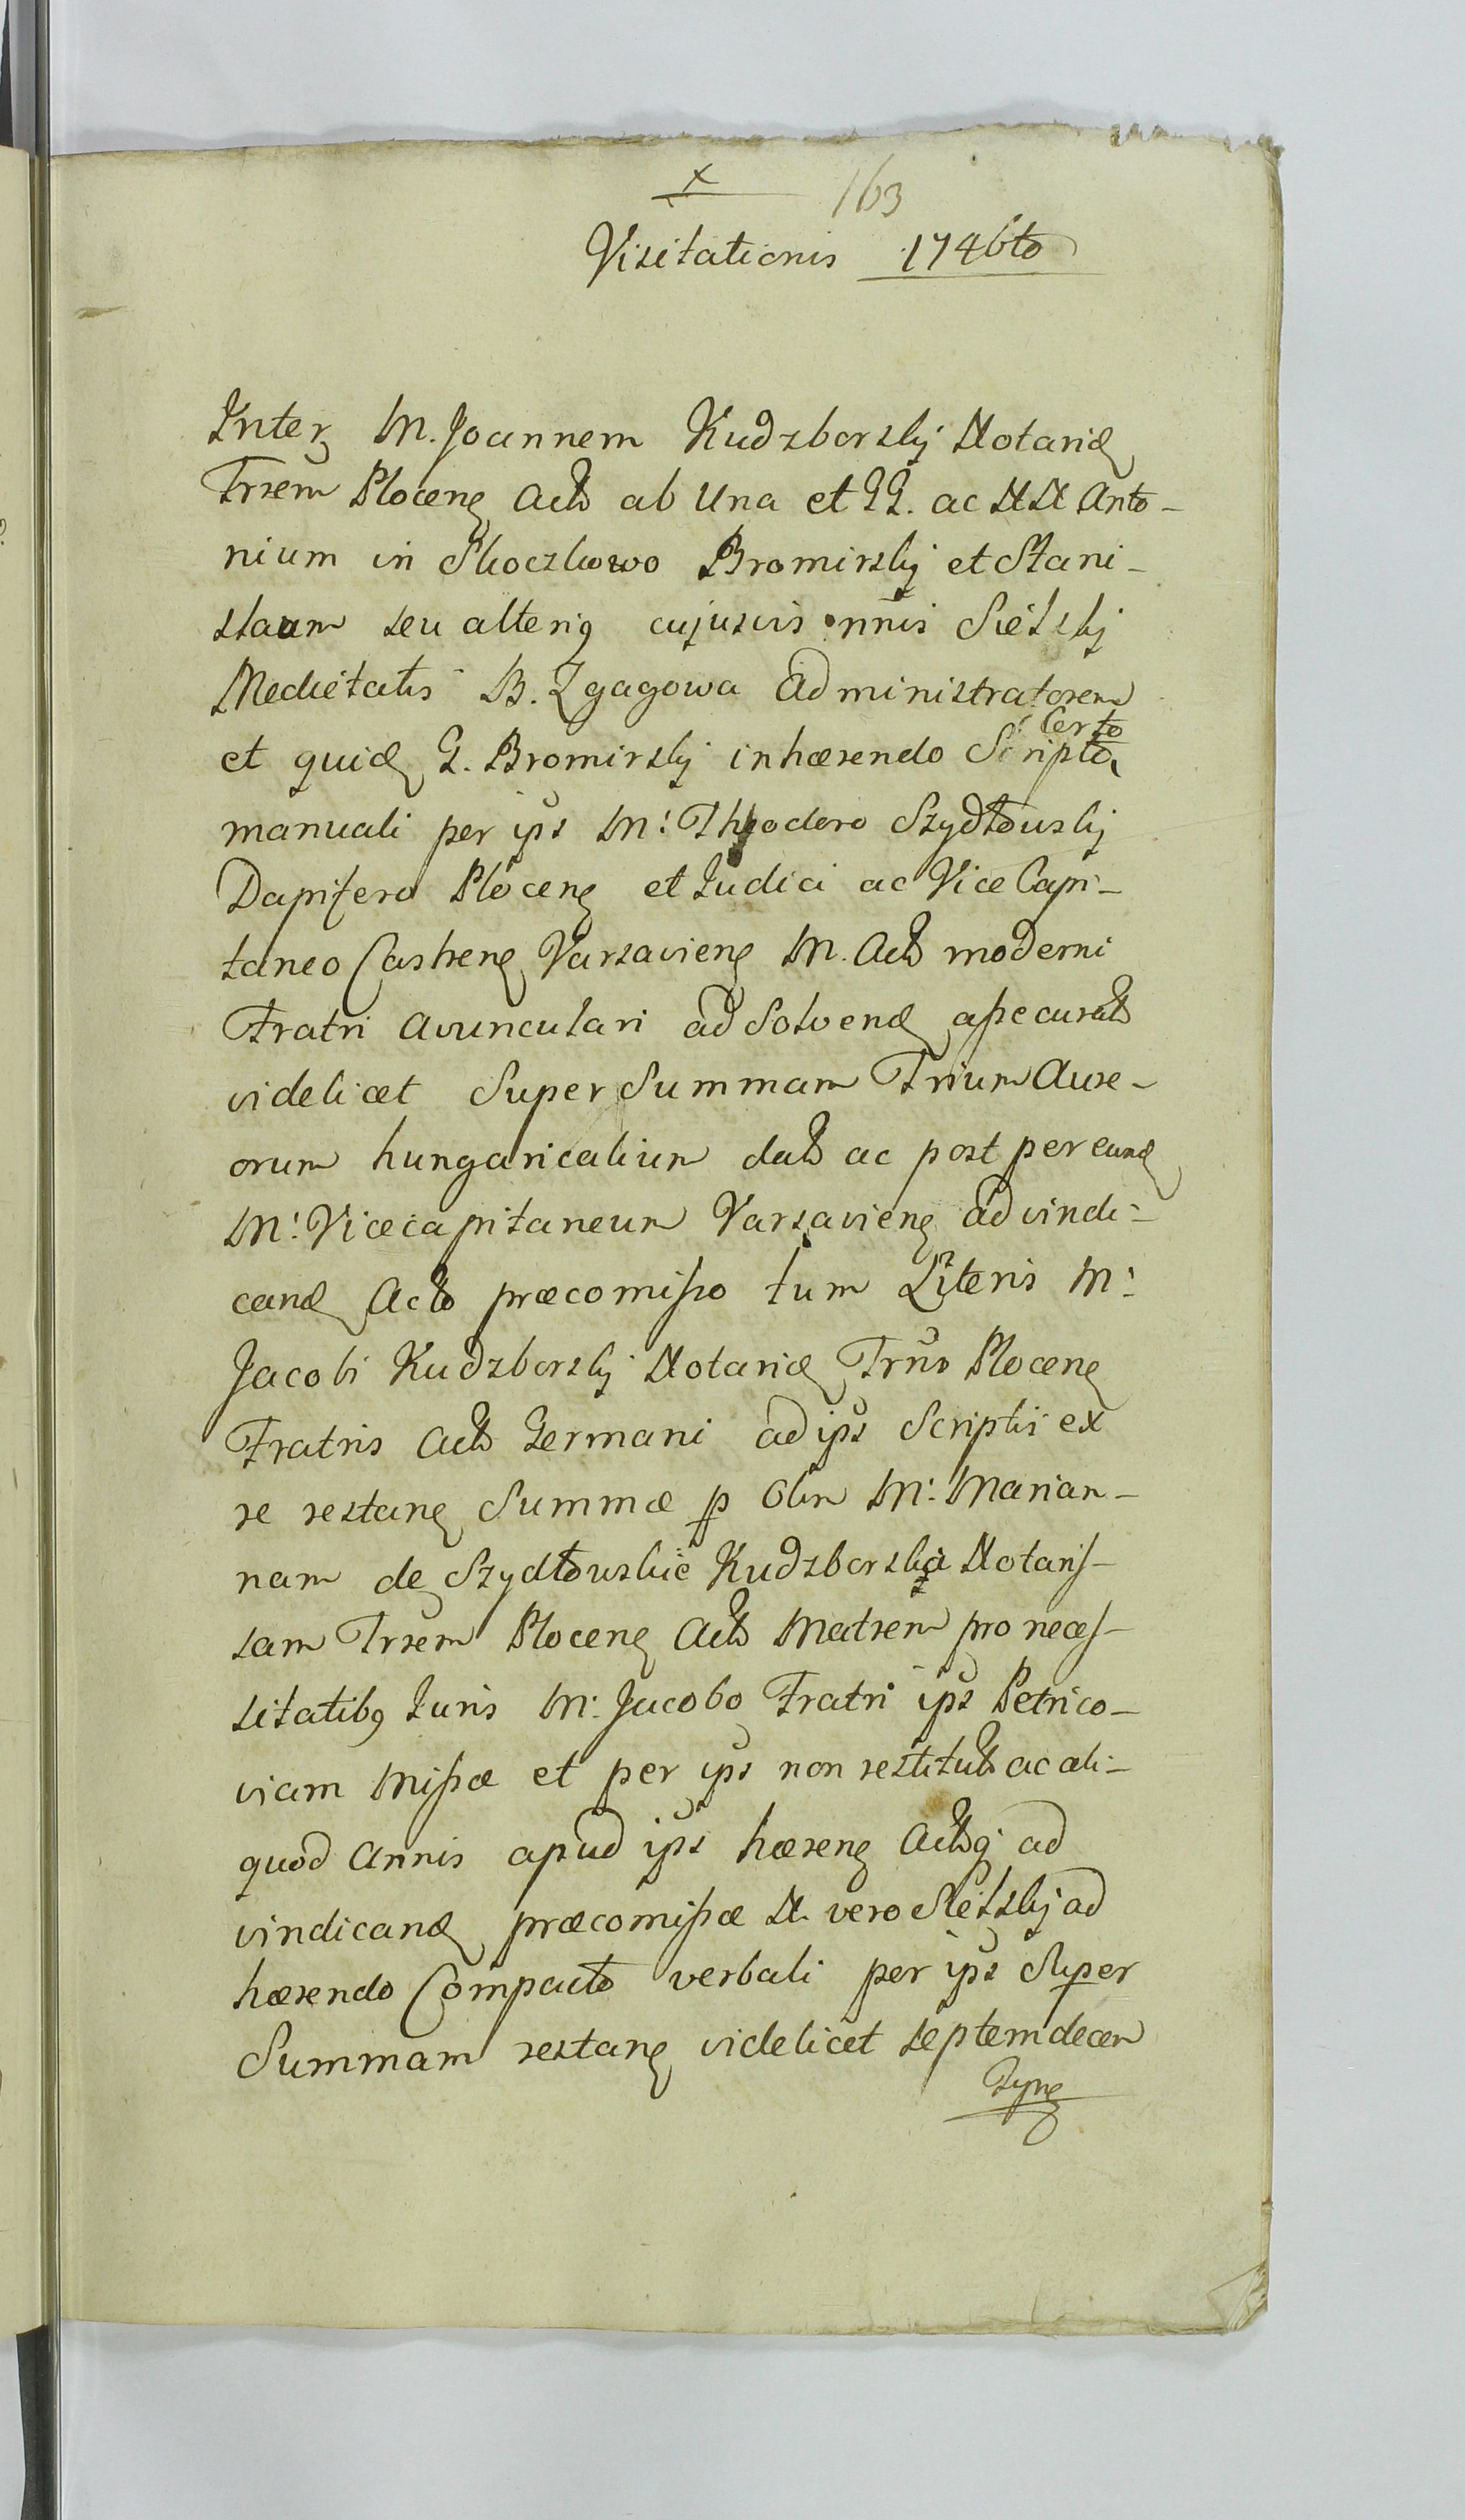 x 163
Visitationis 1746to
Inter M. Joannem Kudzborskÿ Notariū
Trrem Plocenɇ Actō ab Una et GG. ac NN Anto-
nium in Skoczkowo Bromirskÿ et Stani-
slaum seu alterig cujusvis nnis Sielskÿ
Medietatis B. Zgagowa Administratorem
et quid G. Bromirskÿ inhærendo Certo Scripto
manuali per ips M: Theodoro Szydłowskÿ
Dapifero Plocenɇ et Judici ac Vice Capi-
taneo Castrenɇ Varsavienɇ M. Actō moderni
Fratri Avunculari ad Solvend aßecuratō
videlicet Super Summam Trium Aure-
orum hungaricalium datō ac post per eund
M: Vicecapitaneum Varsavienɇ ad vindi-
cand Actō præcomißo tum Literis M:
Jacobi Kudzborskÿ Notarid Trris Plocenɇ
Fratris Actō Germani ad ips Scriptis ex
re restanɇ Summæ p Olim M: Marian-
nam de Szydłowskie Kudzborska Notariß-
sam Trrem Plocenɇ Actō Matrem pro neceß-
sitatibg Juris M: Jacobo Fratri ips Petrico-
viam Mißæ et per ips non restitutō ac ali-
quod Annis apud ips hærenɇ Actōq ad
vindicand præcomißæ N. vero Sielskÿ ad
hærendo Compacto verbali per ips Super
Summam restanɇ videlicet septemdecem